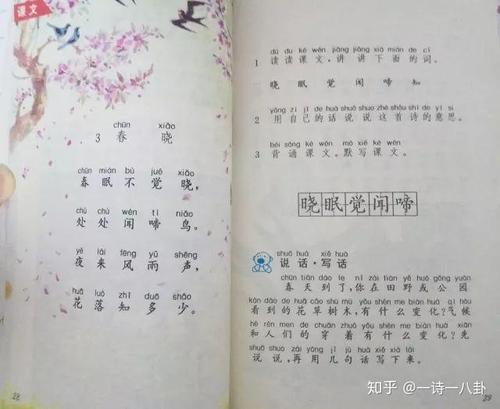 课文
chūn xiǎo
3 春 晓
chūn mián bù jué xiǎo
春 眠 不 觉 晓，
chù chù wén tí niǎo
处 处 闻 啼 鸟。
yè lái fēng yǔ shēng
夜 来 风 雨 声，
huā luò zhī duō shǎo
花 落 知 多 少。
28
dú du kè wén jiǎng jiǎng xià miàn de cí
1 读读课文，讲讲下面的词。
晓 眠 觉 闻 啼 知
yòng zì jǐ de huà shuō shuo zhè shǒu shī de yì si
2 用自己的话说说这首诗的意思。
bèi sòng kè wén mò xiě kè wén
3 背诵课文。默写课文。
晓眠觉闻啼
shuō huà xiě huà
说话·写话
chūn tiān dào le nǐ zài tián yě huò gōng yuán
春天到了，你在田野或公园
kàn dào de huā cǎo shù mù yǒu shén me biàn huà qì hòu
看到的花草树木，有什么变化？气候
hé rén men de chuān zhuó yǒu shén me biàn huà xiān
和人们的穿着有什么变化？先
shuō shuo zài yòng jǐ jù huà xiě xià lái
说说，再用几句话写下来。
29
知乎 @一诗一八卦